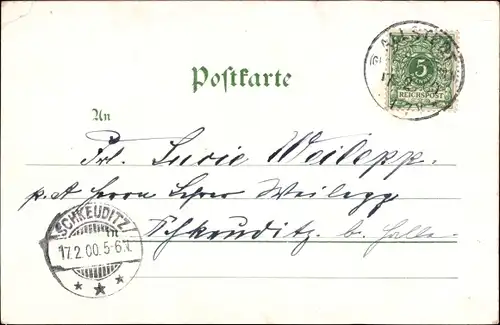 Postkarte
5
REICHSPOST
An
Frl. Lucie Weilepp.
p. A Herrn Lehrer Weilepp
Schkeuditz b. Halle.
SCHKEUDITZ
17.2.00.5-6N.